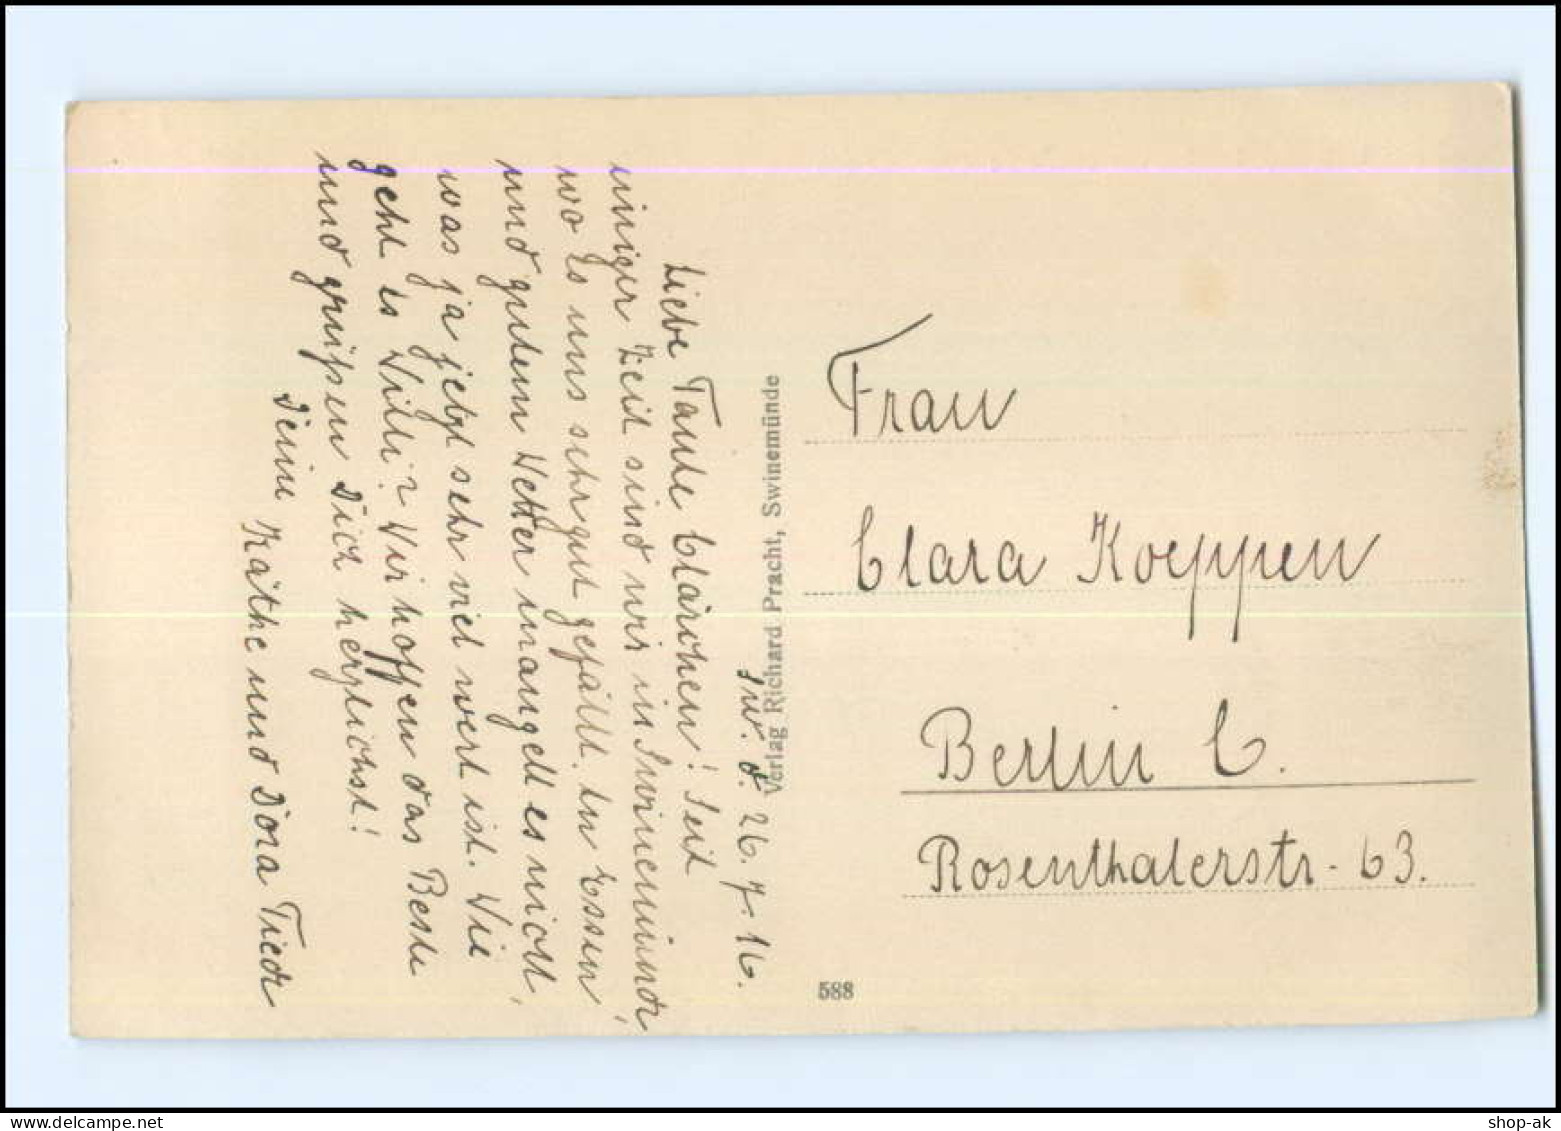 Sw. d. 26. 7. 16.
Liebe Tante Clärchen! Seit
einiger Zeit sind wir in Swinemünde,
wo es uns sehr gut gefällt. An Essen
und gutem Wetter mangelt es nicht,
was ja jetzt sehr viel wert ist. Wie
geht es Willi? Wir hoffen das Beste
und grüßen Dich herzlichst!
Deine Käthe und Dora Tiede
Verlag Richard Pracht, Swinemünde
Frau
Clara Koeppen
Berlin C.
Rosenthalerstr. 63.
588
shop-ak